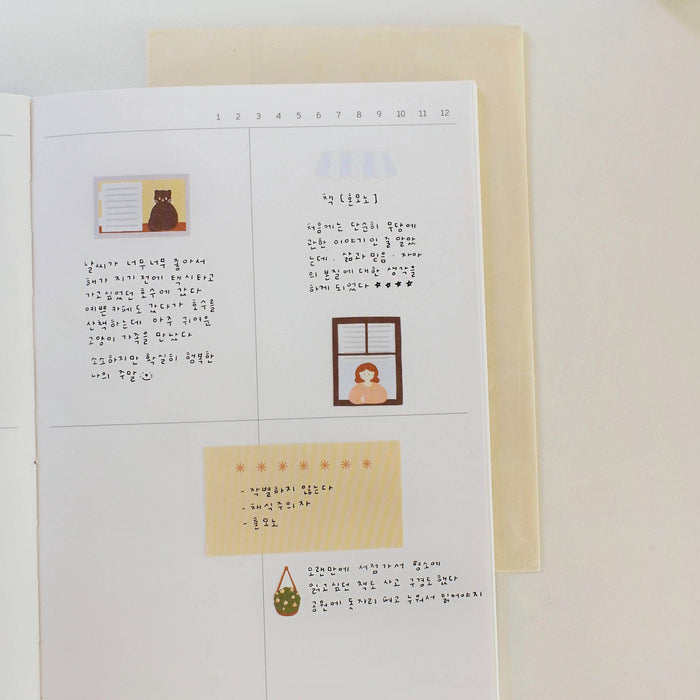 1 2 3 4 5 6 7 8 9 10 11 12
날씨가 너무너무 좋아서
해가 지기 전에 택시타고
가고싶었던 호수에 갔다
예쁜 카페도 갔다가 호수를
산책하는데 아주 귀여운
고양이 가족을 만났다
소소하지만 확실히 행복한
나의 주말
책 [혼모노]
처음에는 단순히 무당에
관한 이야기인 줄 알았
는데, 삶과 믿음, 자아
의 본질에 대한 생각을
하게 되었다 ★★★★
- 작별하지 않는다
- 채식주의자
- 혼모노
오랜만에 서점가서 평소에
읽고싶던 책도 사고 구경도 했다
공원에 돗자리 펴고 누워서 읽어야지